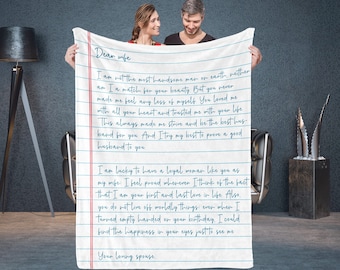 Dear wife
I am not the most handsome man on earth, neither
am I a match for your beauty. But you never
made me feel any less of myself. You loved me
with all your heart and trusted me with your life
This always made me strive and be the best hus
band for you. And I try my best to prove a good
husband to you
I am lucky to have a loyal woman like you as
my wife. I feel proud whenever I think of the fact
that I am your first and last love in life. Also
you do not live off worldly things, even when I
turned empty handed on your birthday, I could
find the happiness in your eyes just to see me
Your loving spouse.